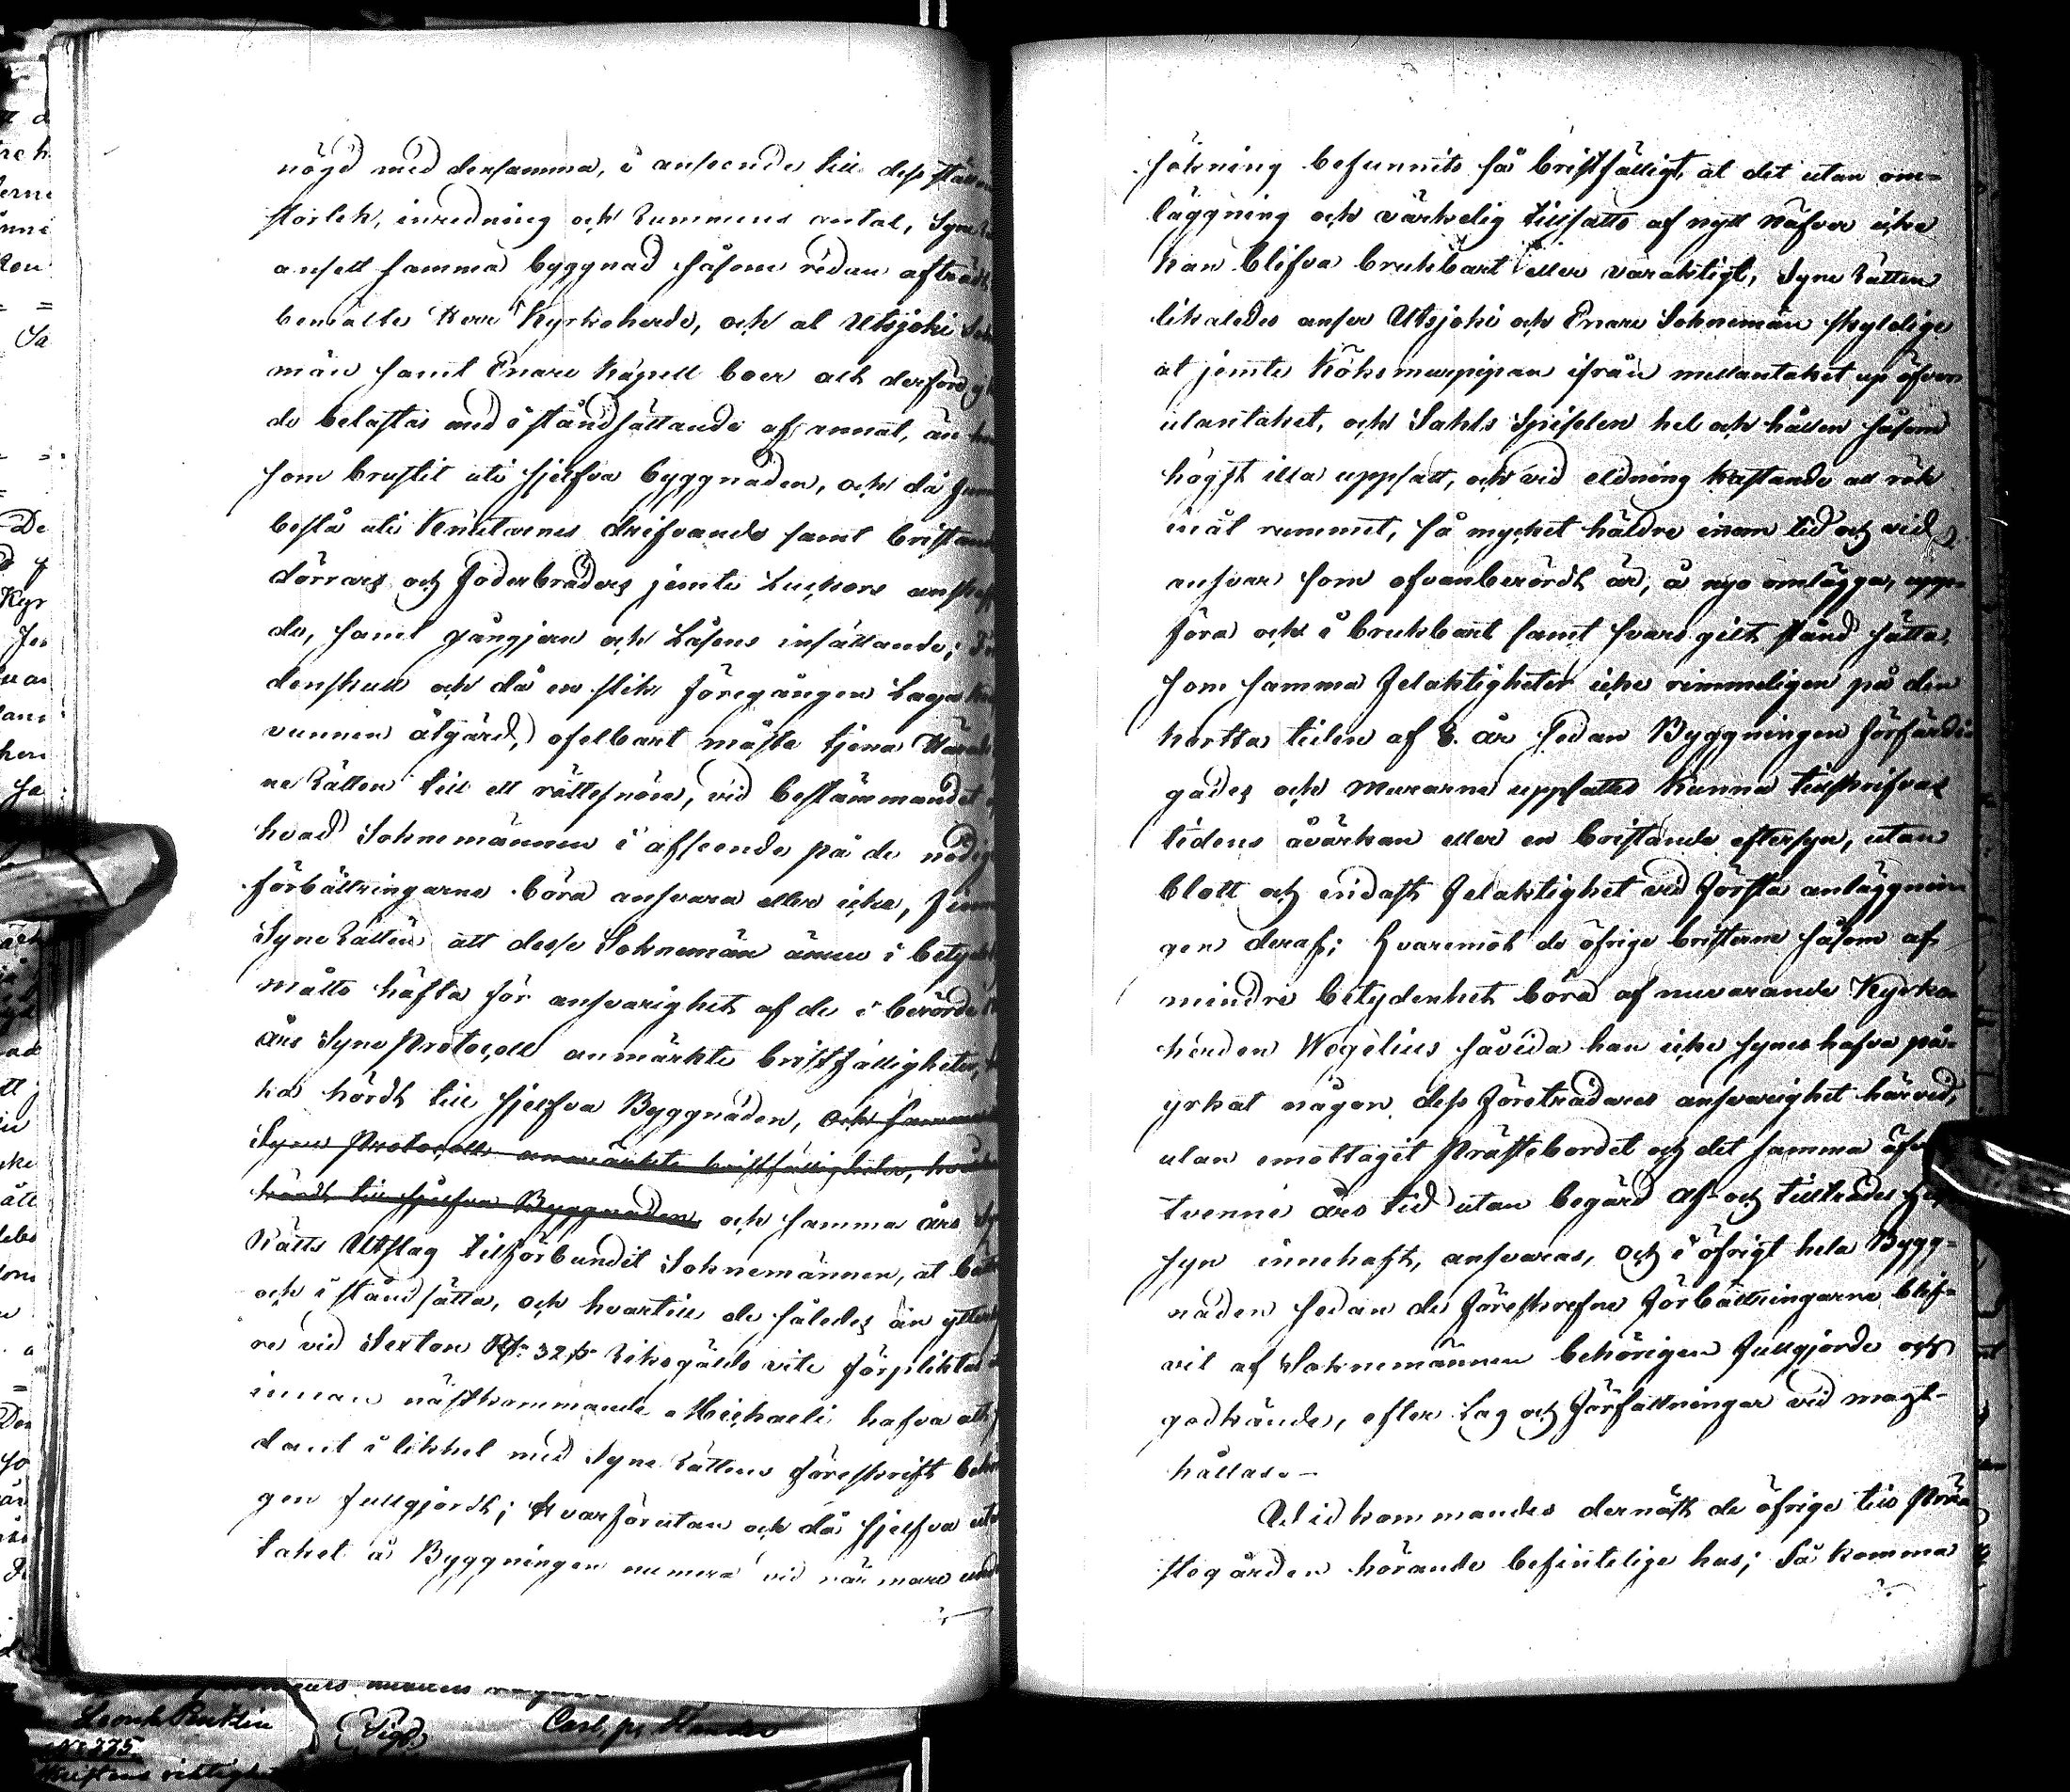 nögd med densamma, i anseende till dess
storlek, inredning och Rummens antal, Syne
ansett samma byggnad såsom redan afträdt
bemälte Herr Kyrkoherde, och at Utsjoki
män samt Enare Kapell boer allt derföre
de belastas med i ståndsättande af annat, än
som brustit uti sjelfva byggnaden, och då
bestå uti Knutarnes drifvande samt bristande
dörrars och Foderbräders jemte Luckors
de, samt gångjern och Låsens insättande;
denskull och då en slik föregången Laga
vunnen åtgärd, ofelbart måste tjena
ne Rätten till ett rättesnöre, vid bestämmandet
hvad Soknemännen i afseende på de nödige
förbättringarne böra ansvara eller icke,
Syne Rätten att desse Soknemän
måtto häfta för ansvarighet af de i berörde
års Syne Protocoll anmärkte bristfälligheter,
ha hördt till sjelfva Byggnaden, och samma
Syne Protocoll anmärkte bristfälligheter,
hördt till sjelfva Byggnaden, och samma års
Rätts Utslag tillförbundit Soknemännen, at
och i stånd sätta, och hvartill de således än ytterli
re vid Sexton Rd 32 s Riksgälds vite förpliktas
innan nästkommande Michaeli hafva allt
damt i likhet med Syne Rättens föreskrift
gen fullgjordt; Hvarförutan och då sjelfva
taket å Byggningen numera vid närmare und
sökning befunnits så bristfälligt, at det utan om-
läggning och värkelig tillsatts af nytt näfver icke
kan blifva brukbart eller varaktigt, Syne Rätten
likaledes anser Utsjoki och Enare Soknemän skyldige
at jemte Köksmurpipan ifrån mellantaket up öfver
utantaket, och Sahls Spiselen hel och hållen såsom
högst illa uppsatt, och vid eldning kastande all rök
inåt rummet, så mycket häldre inom tid och vid
ansvar som ofvanberördt är, å nyo omlägga, upp-
föra och i brukbart samt svars gilt stånd sätta,
som samma felaktigheter icke rimmeligen på den
kortta tiden af 8. år sedan Byggningen förfärdi
gades och Murarne uppsattes kunna tillskrifvas
tidens åvärkan eller en bristande eftersyn, utan
blott och endast felaktighet vid första anläggnin
gen deraf; Hvaremot de öfrige bristerne såsom af
mindre betydenhet böra af nuvarande Kyrko-
herden Wegelius såvida han icke synes hafva på-
yrkat någon dess Företrädares ansvarighet härvid,
utan emottagit Prästebordet och det samma
tvenne års tid utan begärd af- och tillträdes
syn innehaft, ansvaras, och i öfrigt hela Bygg-
naden sedan de föreskrefne förbättringarne blif-
vit af Soknemännen behörigen fullgjorde och
godkände, efter Lag och författningar vid magt-
hållas.-
Vidkommandes dernäst de öfrige till Prä
stegården hörande befintelige hus; Så komma